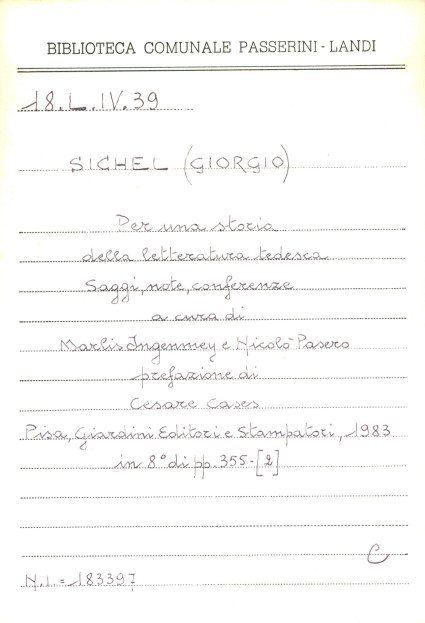 BIBLIOTECA COMUNALE PASSERINI - LANDI
18.L.IV.39
SICHEL (GIORGIO)
Per una storia
della letteratura tedesca
Saggi, note, conferenze
a cura di
Marlis Ingenmey e Nicolò Pasero
prefazione di
Cesare Cases
Pisa, Giardini Editori e Stampatori, 1983
in 8° di pp. 355-[2]
C
N.I. = 183397